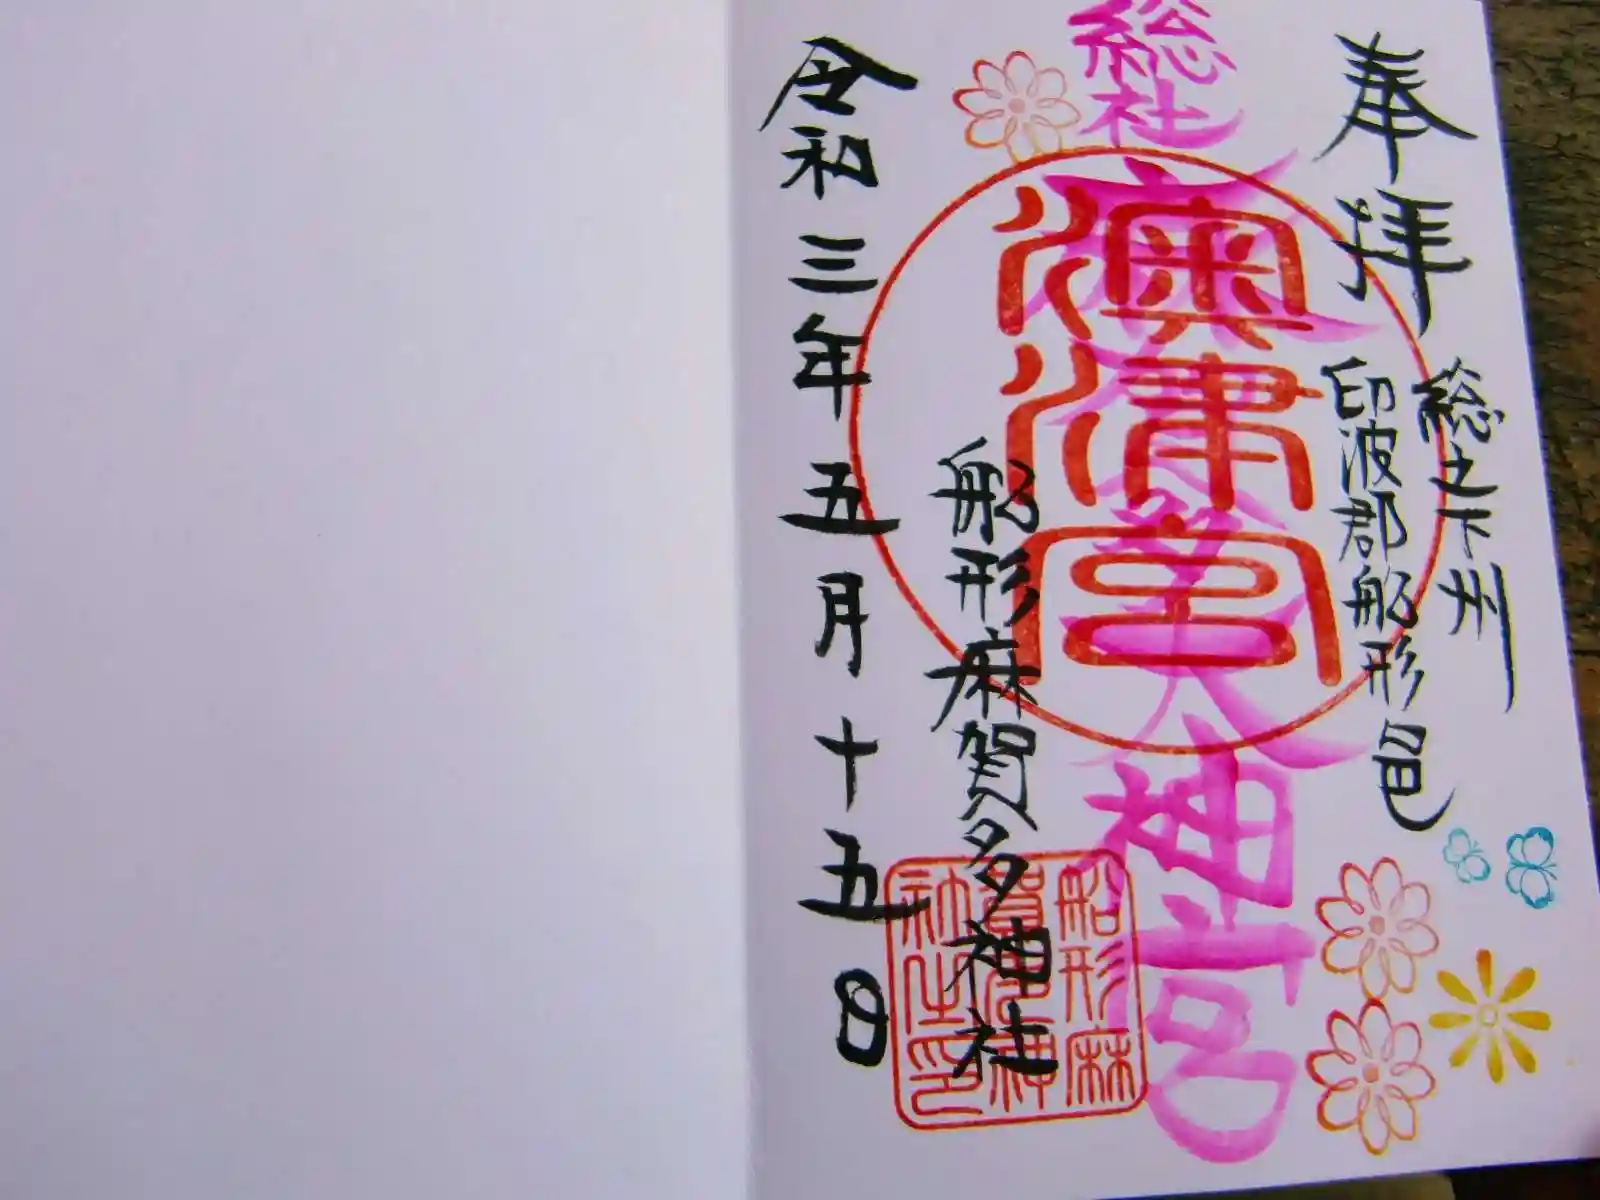 奉拝
総之下州
印波郡船形邑
総社
麻賀多大神宮
澳津宮
船形麻賀多神社
船形麻賀多神社之印
令和三年五月十五日